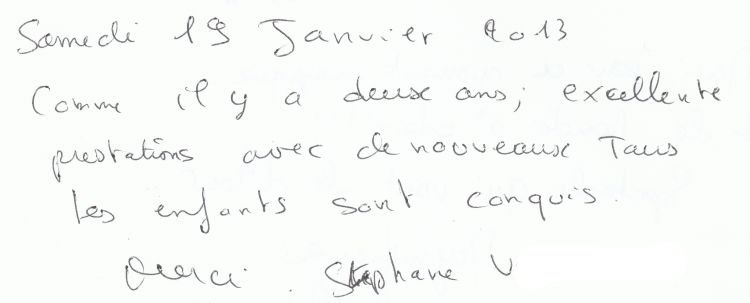 Samedi 19 Janvier 2013
Comme il y a deux ans, excellente
prestations avec de nouveaux Tours
les enfants sont conquis.
Merci. Stephane V